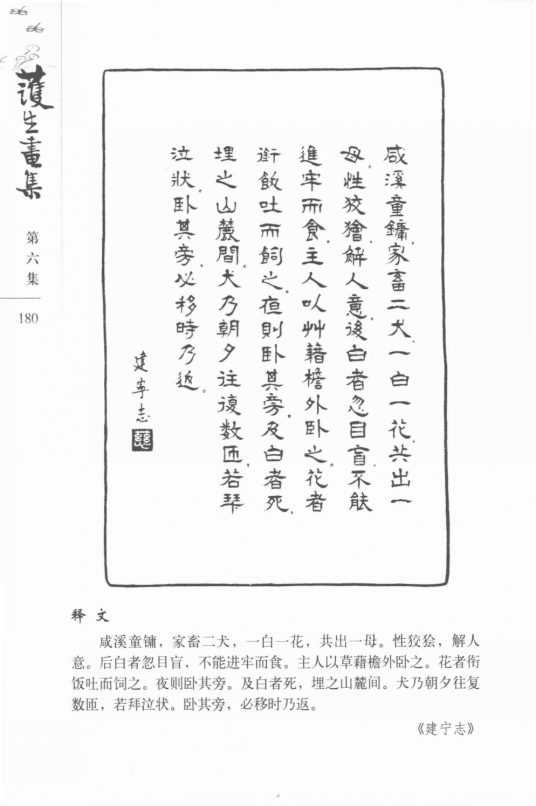 護生畫集
第六集
180
咸溪童鏞.家畜二犬.一白一花.共出一
母.性狡獪.解人意.後白者忽目盲.不能
進牢而食.主人以艸藉檐外卧之.花者
銜飯吐而飼之.夜則卧其旁.及白者死.
埋之山麓間.犬乃朝夕往復数匝.若拜
泣狀.卧其旁.必移時乃返.
建寧志
释文
咸溪童镛，家畜二犬，一白一花，共出一母。性狡狯，解人
意。后白者忽目盲，不能进牢而食。主人以草藉檐外卧之。花者衔
饭吐而饲之。夜则卧其旁。及白者死，埋之山麓间。犬乃朝夕往复
数匝，若拜泣状。卧其旁，必移时乃返。
《建宁志》